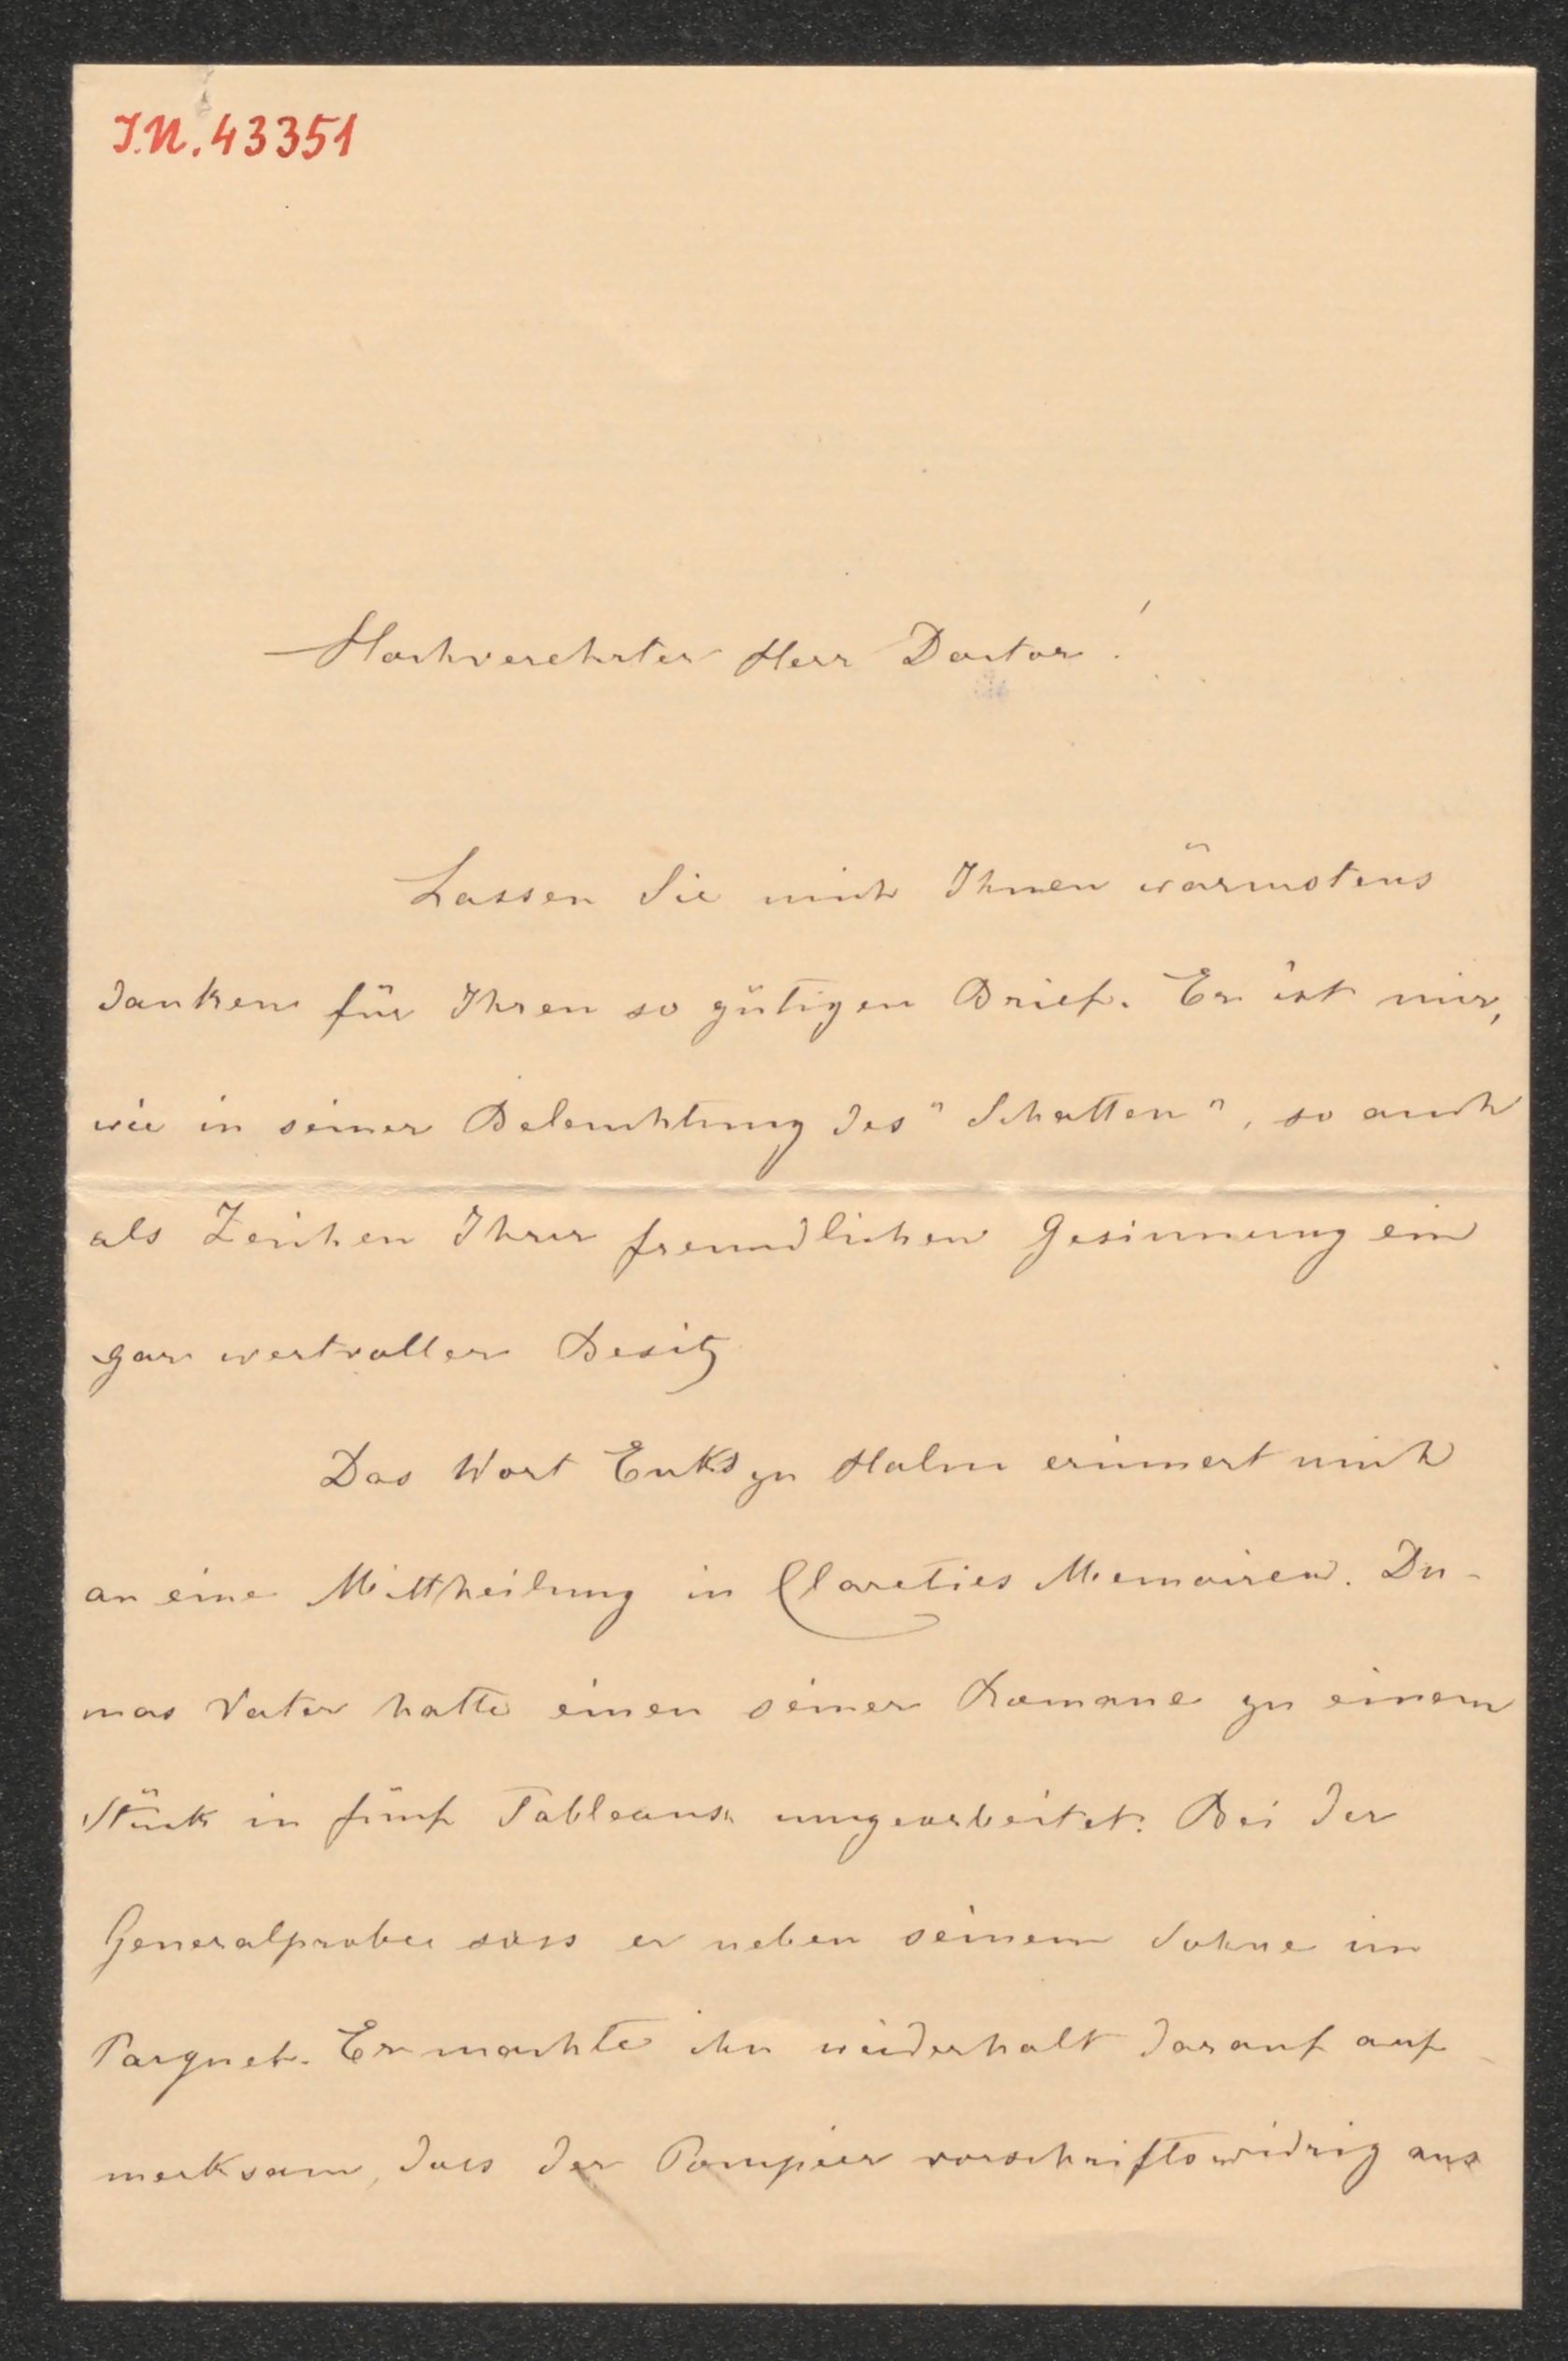 I.N. 43351
Hochverehrter Herr Doctor!
Lassen Sie mich Ihnen wärmstens
danken für Ihren so gütigen Brief. Er ist mir,
wie in seiner Beleuchtung des "Schatten", so auch
als Zeichen Ihrer freundlichen Gesinnung ein
gar wertvoller Besitz
Das Wort Enks zu Halm erinnert mich
an eine Mittheilung in Clareties Memoiren. Du-
mas Vater hatte einen seiner Romane zu einem
Stück in fünf Tableaux umgearbeitet. Bei der
Generalprobe sass er neben seinem Sohne im
Parquet. Er machte ihn wiederholt darauf auf
merksam, dass der Pompier vorschriftswidrig aus